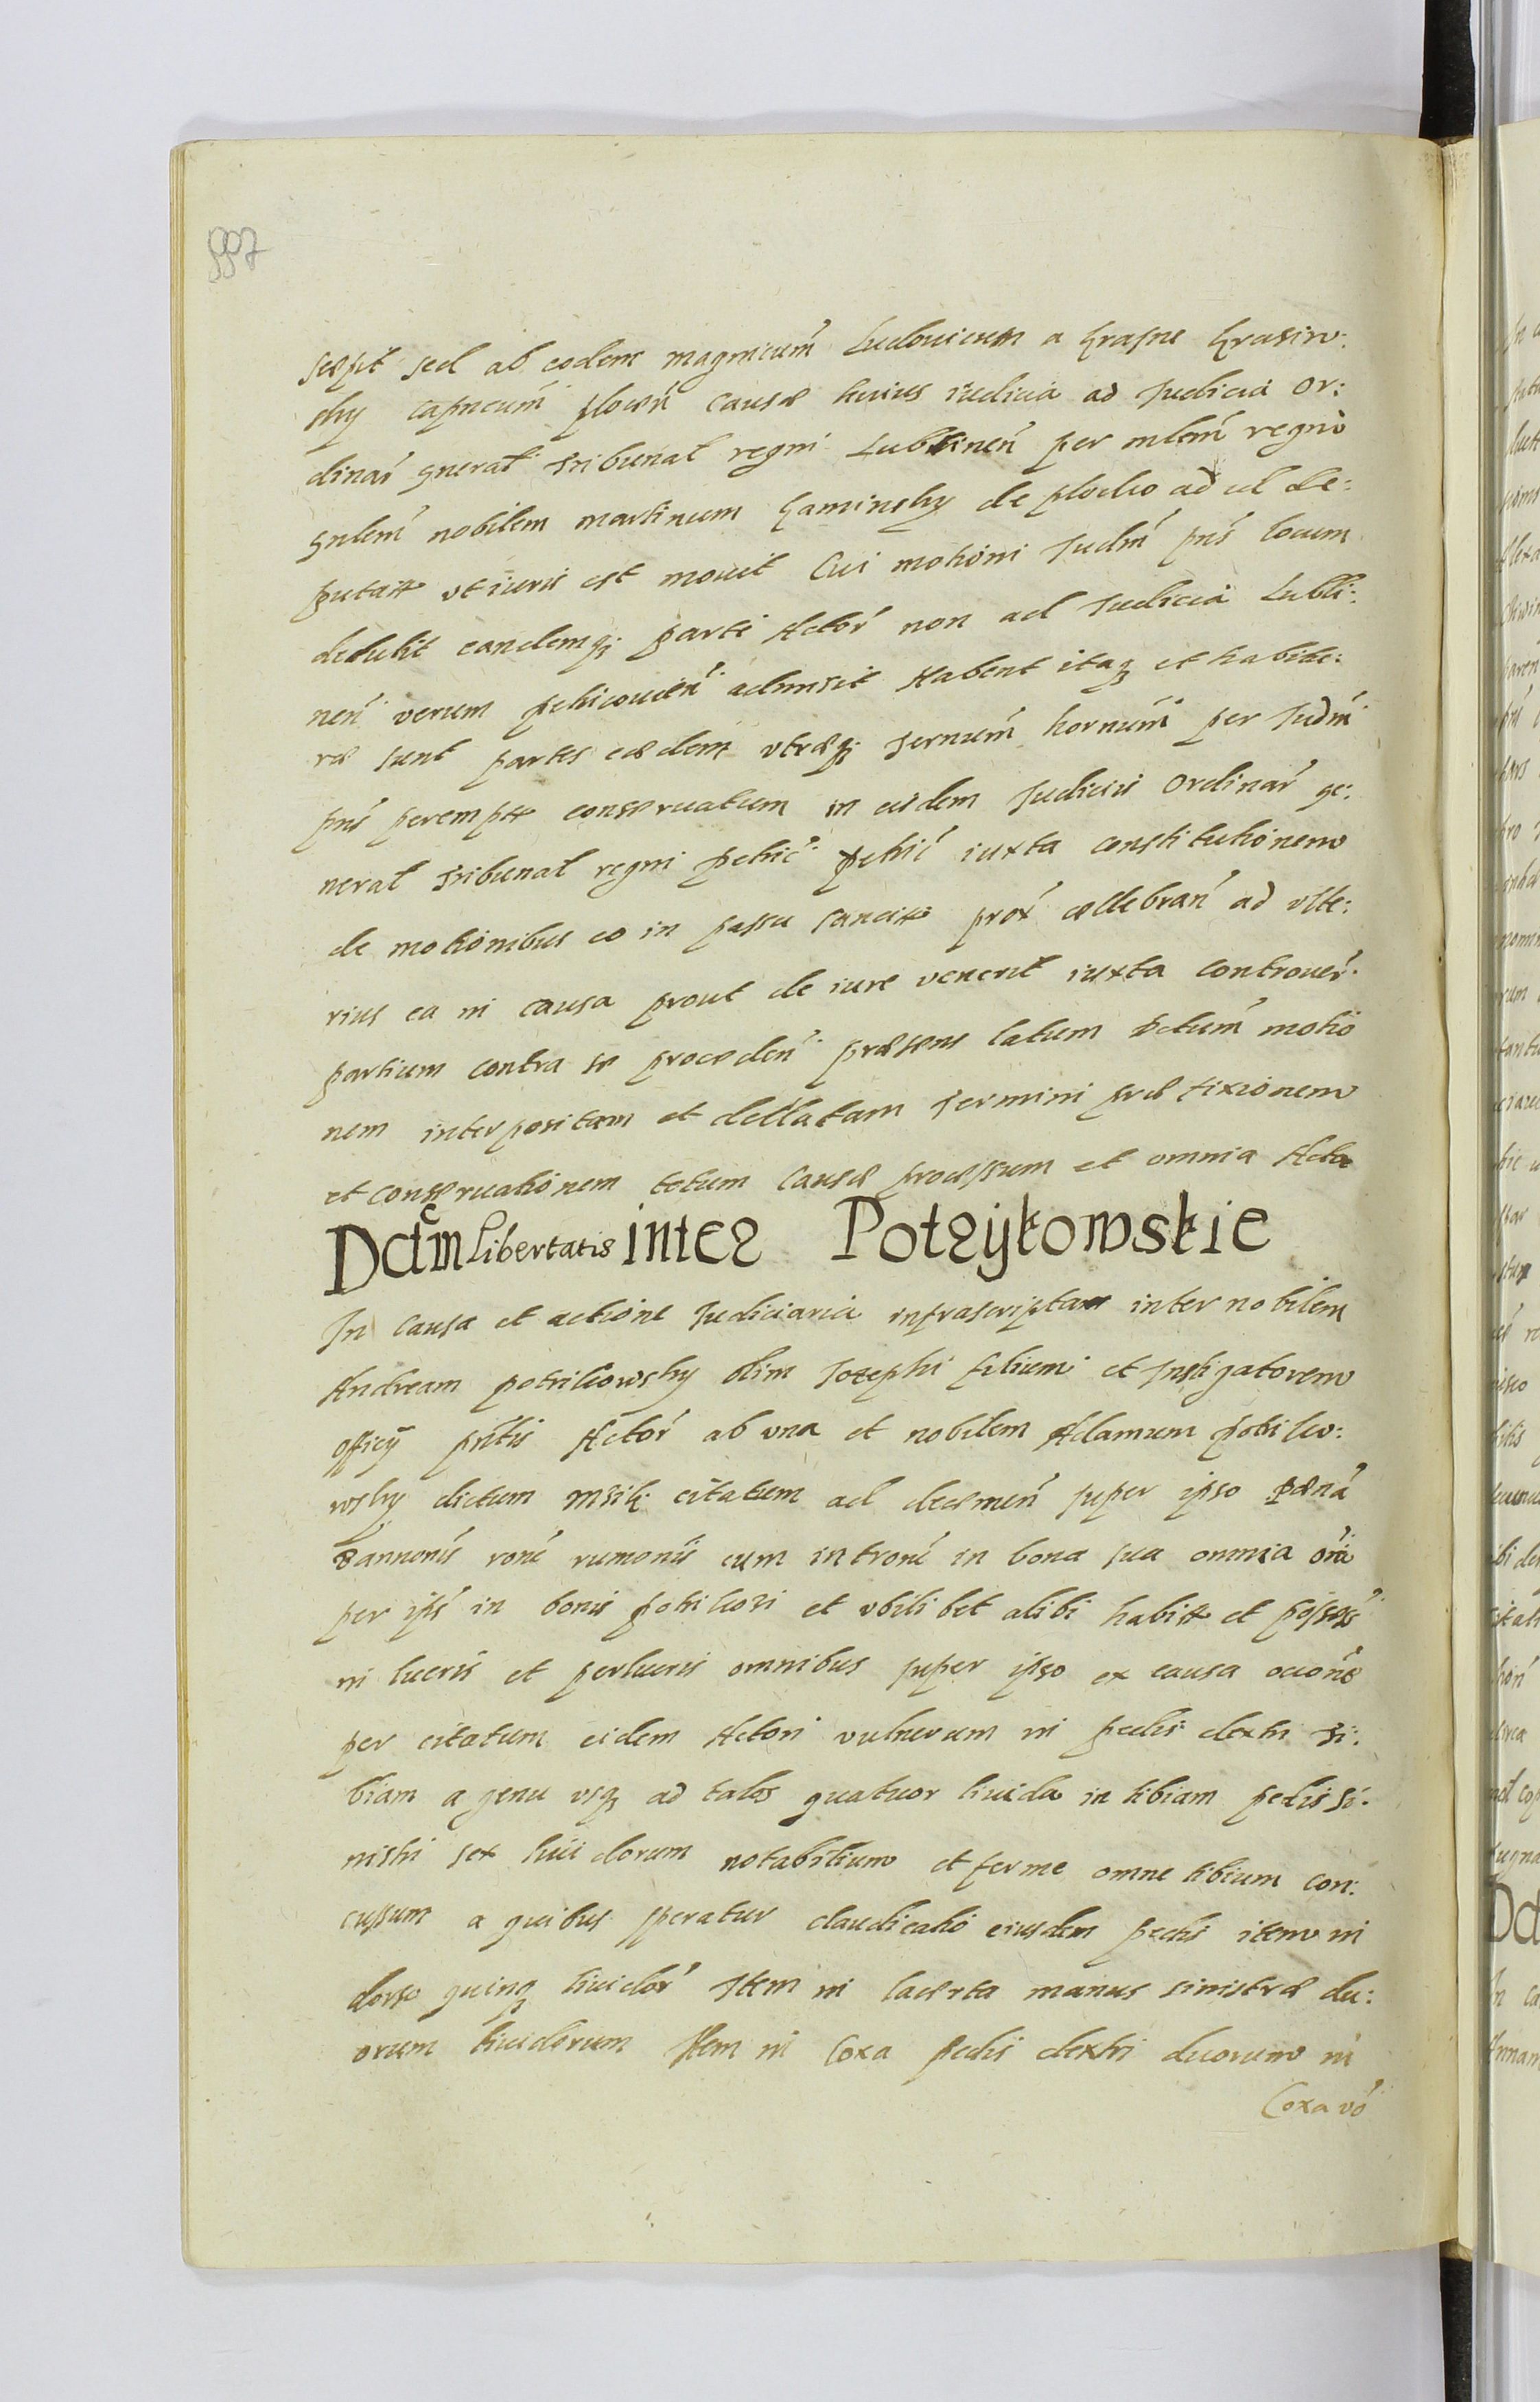 997
scepit sed ab eodem magnicum̃ Ludouicum a Krasne Krasin:
sky capneum̃ plocen̄ causæ huius iudicia ad Judicia or:
dinar̃ gnerał Tribunał regni Lublinen̄ per mlem̃ regni
gnlem̃ nobilem martinum Kaminsky de plocko ad id de:
putatt̃ vt iuris est mouit Cui motioni Judm̃ pns̃ locum
detulit eandemq; parti Actor̃ non ad Judicia Lubli:
nen̄ verum petricouien̄ admisit Habent itaq; et habitu:
ræ sunt partes eædem vtræq; Termm̃ hornum̃ per Judm̃
pns̃ perempt̃ conseruatum in eisdem Judiciis Ordinar̃ ge:
nerał Tribunał regni petric̃ petric̃ iuxta constitutionem
de motionibus eo in passu sancitt̃ prox̃ cellebran̄ ad vlte:
rius ea in causa prout de iure venerit iuxta controuer̃
partium contra se proceden̄ præsens latum Dctum̃ motio
nem interpositam et dellatam Termini præfixionem
et conseruationem totum causæ processum et omnia Acta
Dctm libertatis inter Potrykowskie
In causa et actione Judiciaria infrascriptam inter nobilem
Andream potrikowsky olim Josephi filium et Instigatorem
officÿ pntis Actor̃ ab vna et nobilem Adamum potriko:
wsky dictum citatum ad decernen̄ super ipso pæna
bannonis rone cum introm̃ in bona sua omnia
per ips̃ in bonis potrikozi et vbilibet alibi habitt̃ et possess̃
in lucris et perlucris omnibus super ipso ex causa
per citatum eidem Actori vulnerum in pedis dextri ti:
biam a genu vsq; ad talos quatuor liuida in tibiam pedis si:
nistri sex liuidorum notabilium et ferme omne tibium con:
cussum a quibus speratur claudicatio eiusdem pedis item in
dorso quinq; liuidor̃ Item in lacerta manus sinistræ du:
orum liuidorum Item in Coxa pedis dextri duorum in
Coxa vo